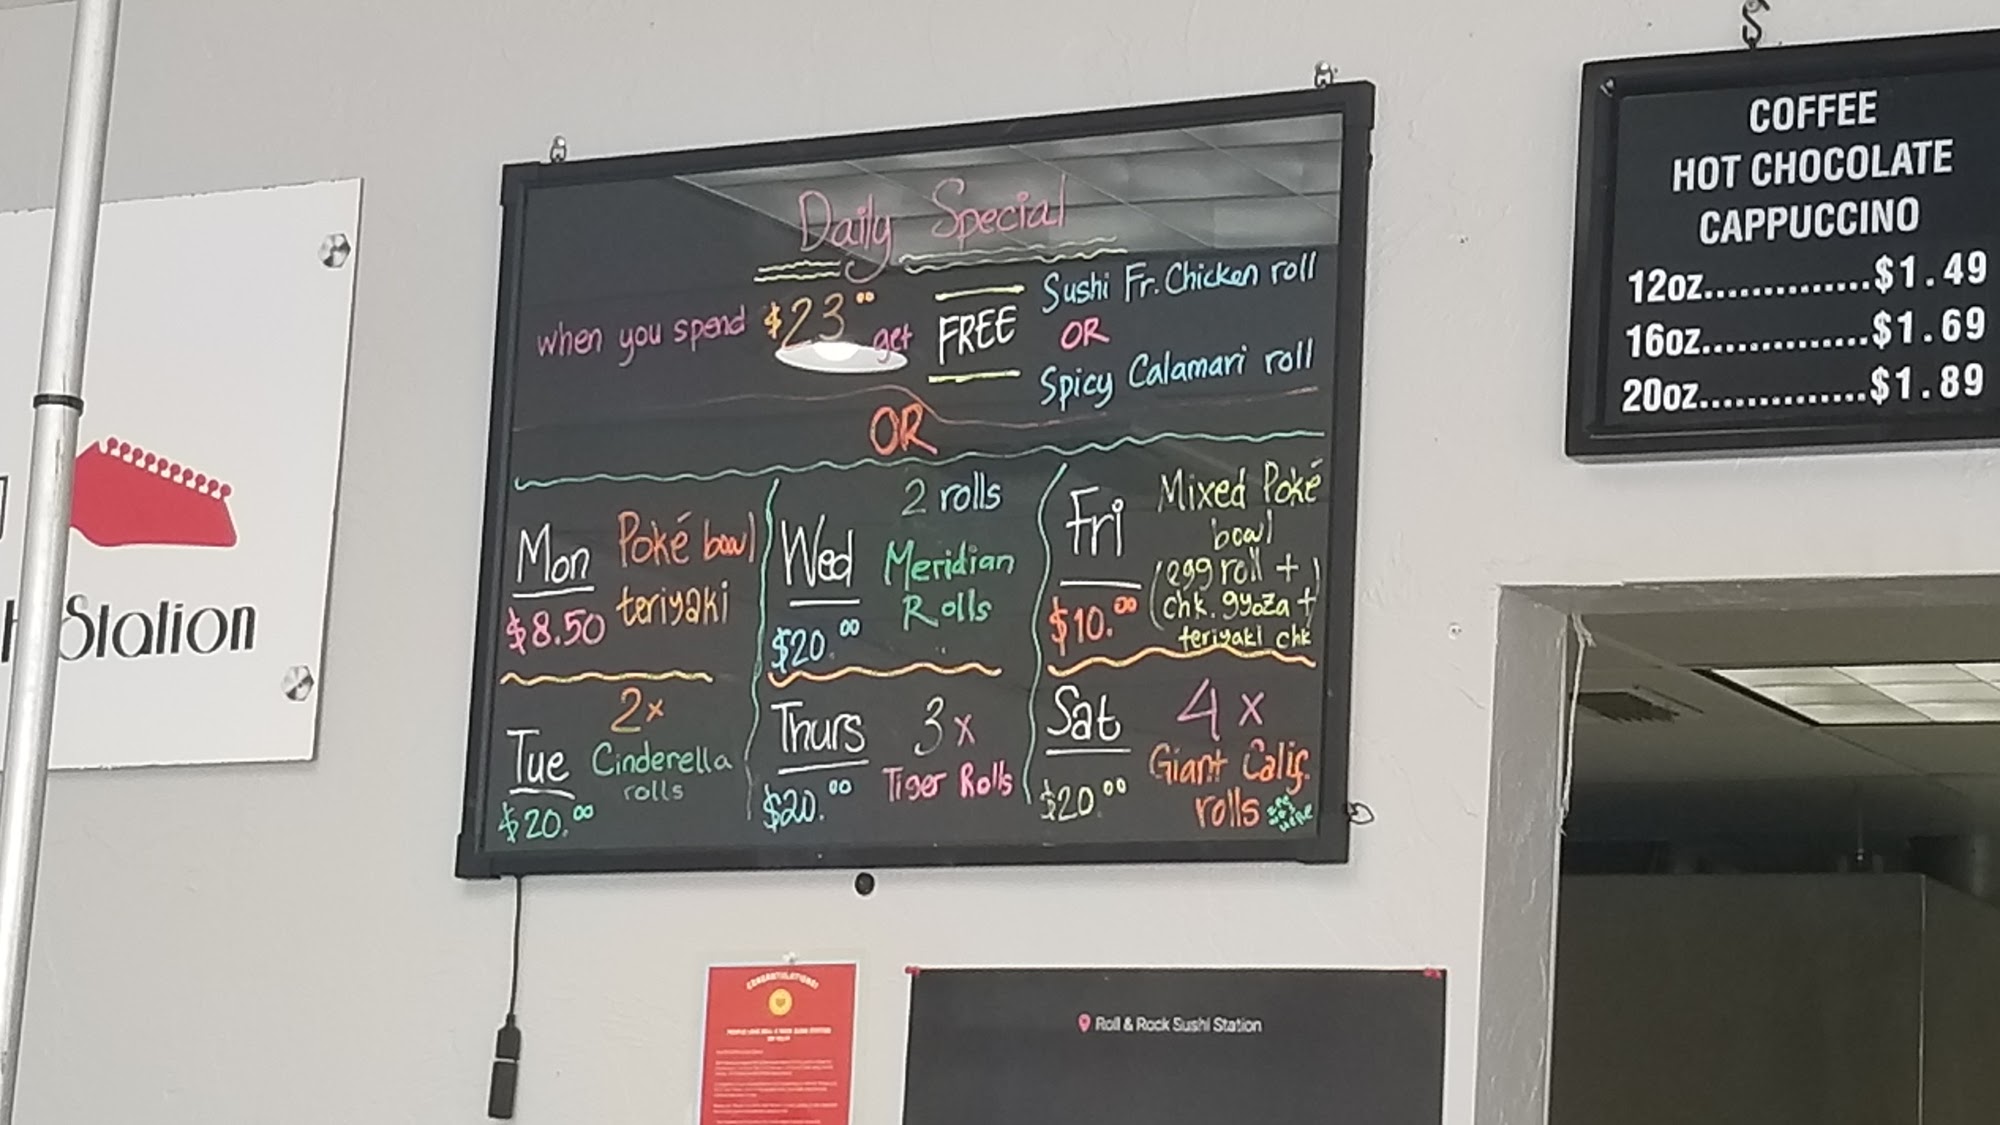 Station
Daily Special
when you spend $23.00 get FREE
Sushi Fr. Chicken roll
OR
Spicy Calamari roll
OR
Mon
$8.50
Poké bowl
teriyaki
Tue
$20.00
2x
Cinderella
rolls
Wed
$20.00
2 rolls
Meridian
Rolls
Thurs
$20.00
3x
Tiger Rolls
Fri
$10.00
Mixed Poké
bowl
(egg roll +
chk. gyoza +
teriyaki chk)
Sat
$20.00
4x
Giant Calif.
rolls
COFFEE
HOT CHOCOLATE
CAPPUCCINO
12oz..............$1.49
16oz..............$1.69
20oz..............$1.89
CONGRATULATIONS!
Roll & Rock Sushi Station